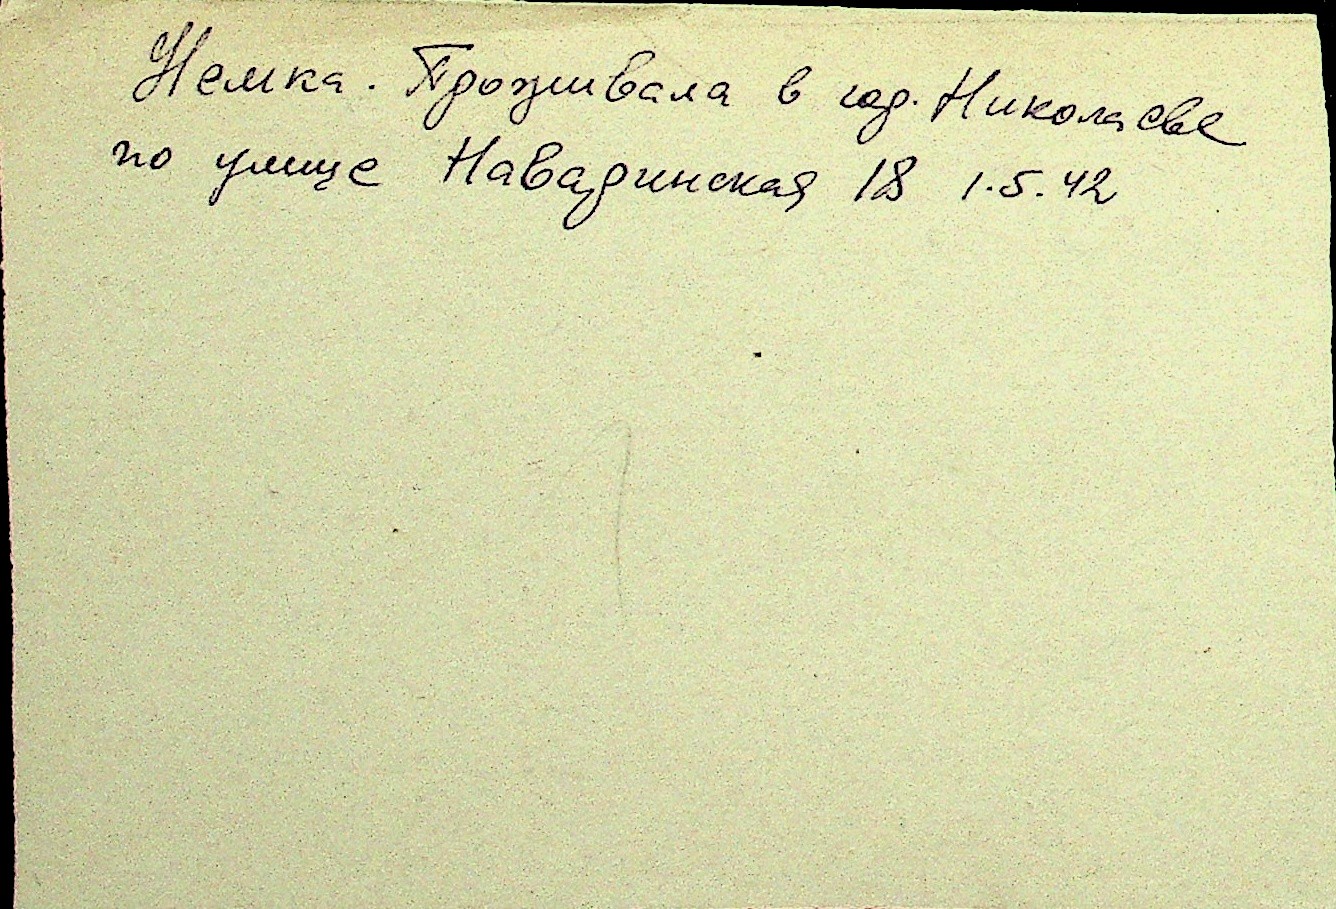 Немка. Проживала в гор. Николаеве
по улице Навадинская 18 1.5.42